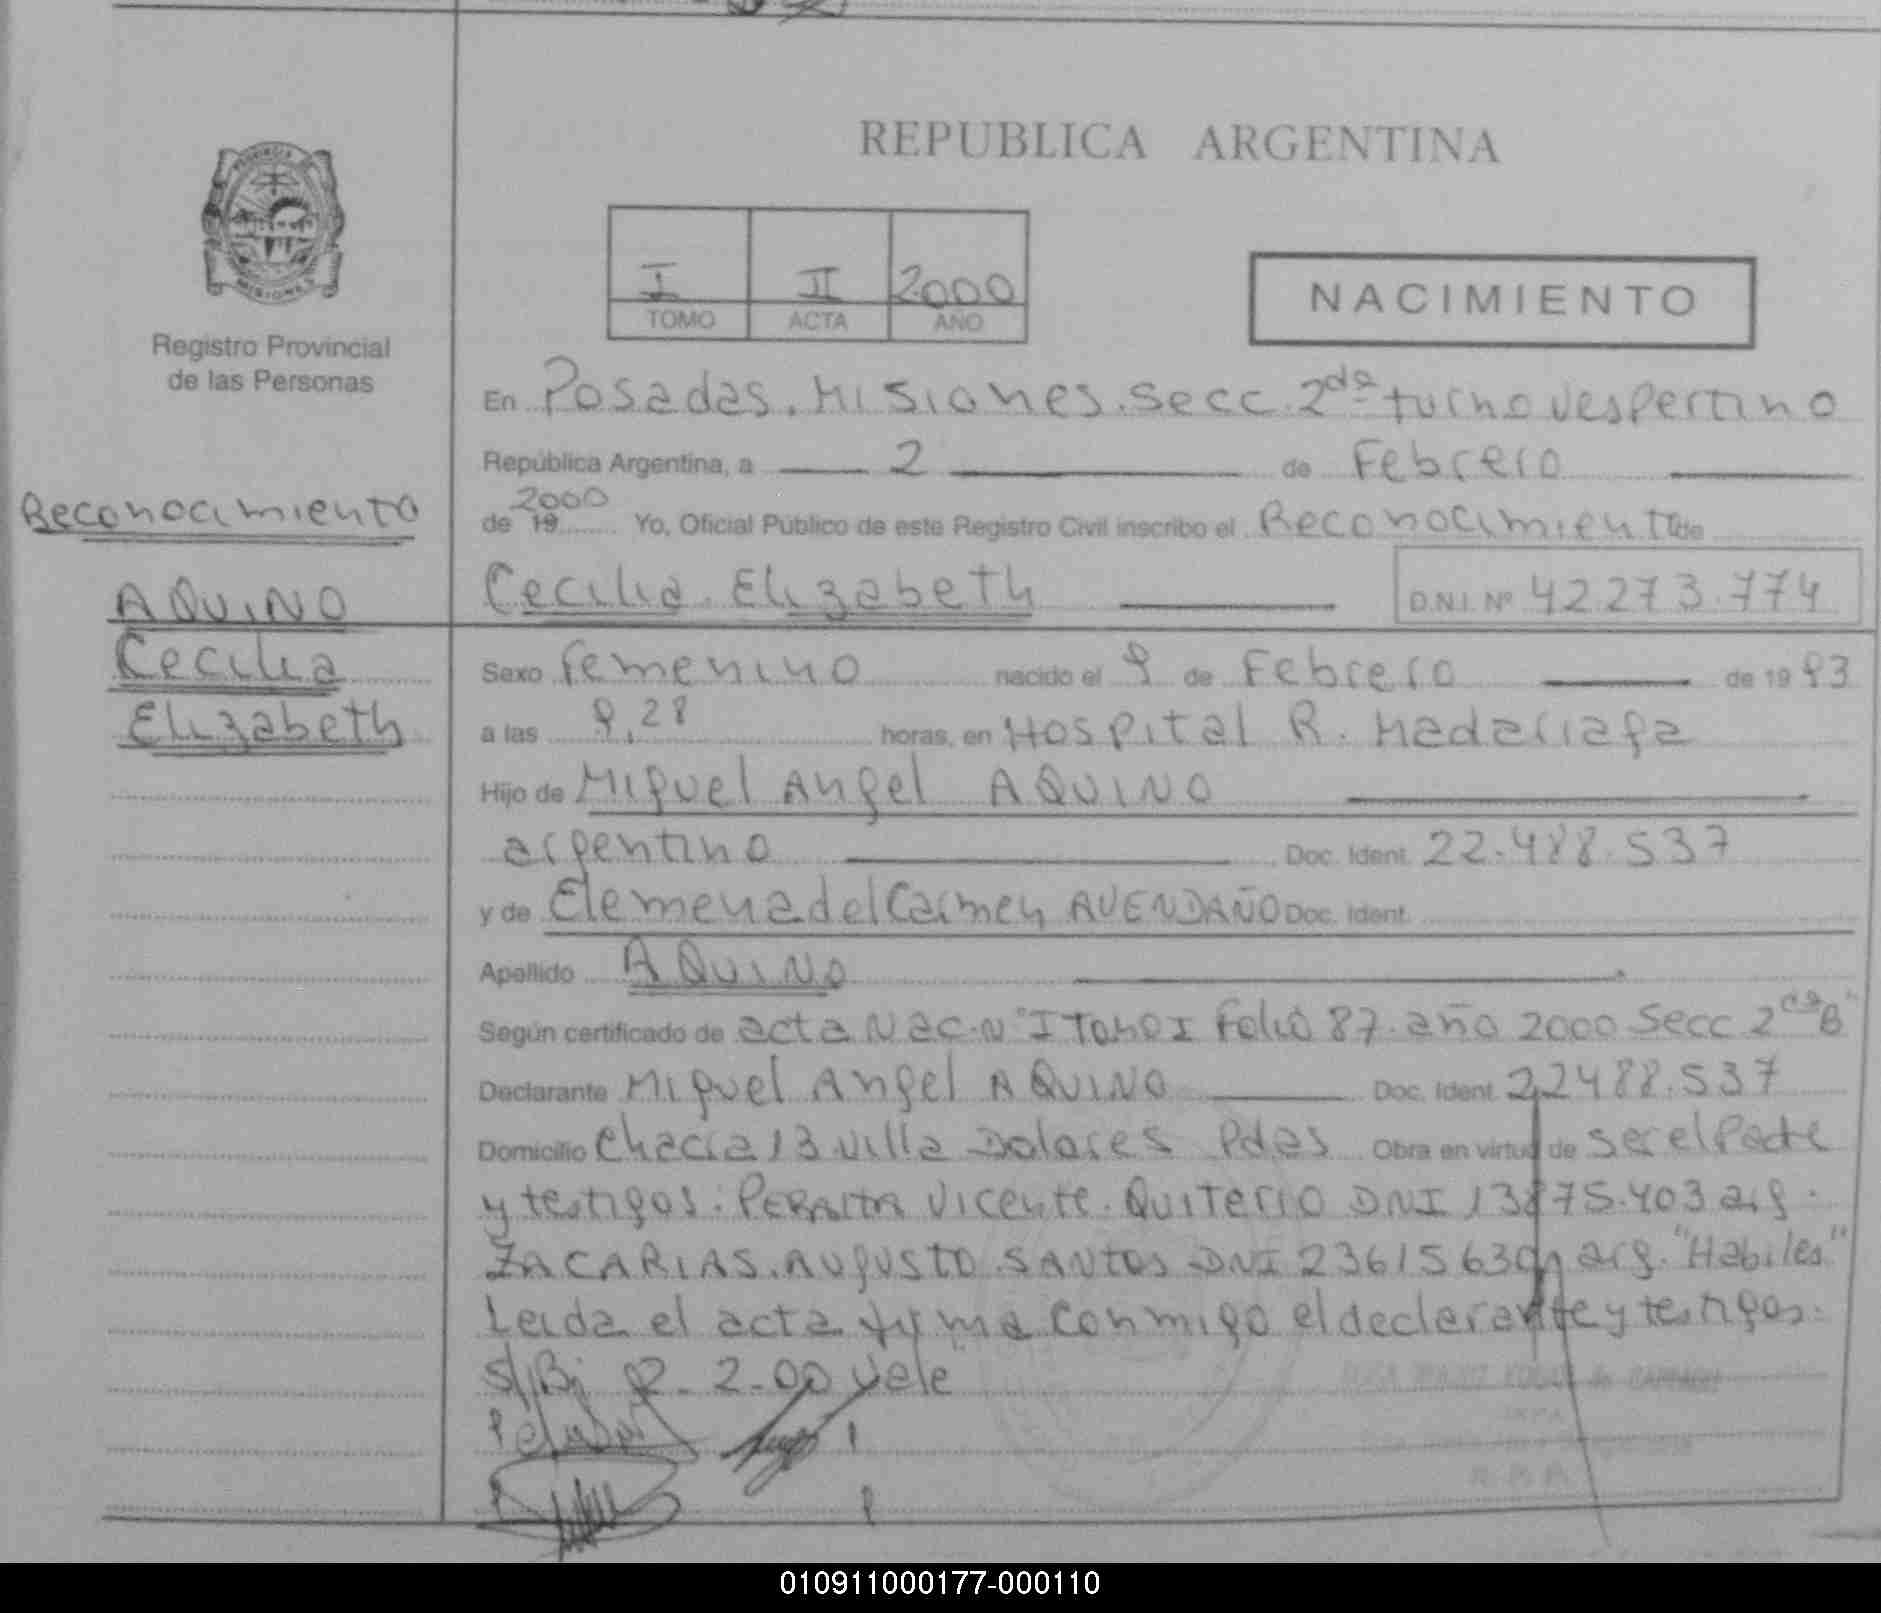 REPUBLICA ARGENTINA
PROVINCIA
MISIONES
Registro Provincial
de las Personas
I II 2000
TOMO ACTA AÑO
NACIMIENTO
En Posadas. Misiones. Secc. 2da turno vespertino
República Argentina, a 2 de Febrero
Reconocimiento
2000
de 19........ Yo, Oficial Público de este Registro Civil inscribo el Reconocimiento de
AQUINO
Cecilia
Elizabeth
Cecilia Elizabeth D.N.I. Nº 42.273.774
Sexo femenino nacido el 9 de Febrero de 19 93
a las 9,28 horas, en Hospital R. Madariaga
Hijo de Miguel Angel AQUINO
argentino Doc. Ident. 22.488.537
y de Elemena del Carmen AVENDAÑO Doc. Ident.
Apellido AQUINO
Según certificado de acta Nac. Nº I Tomo I Folio 87 año 2000 Secc 2da "B"
Declarante Miguel Angel AQUINO Doc. Ident. 22488.537
Domicilio Chacra 13 Villa Dolores Pdas Obra en virtud de ser el Padre
y testigos: PERALTA Vicente Quiterio DNI 13875.403 arg.
ZACARIAS. Augusto SANTOS DNI 23615630 arg. "Habiles"
Leida el acta firma conmigo el declarante y testigos.
2-2.00 vale
010911000177-000110